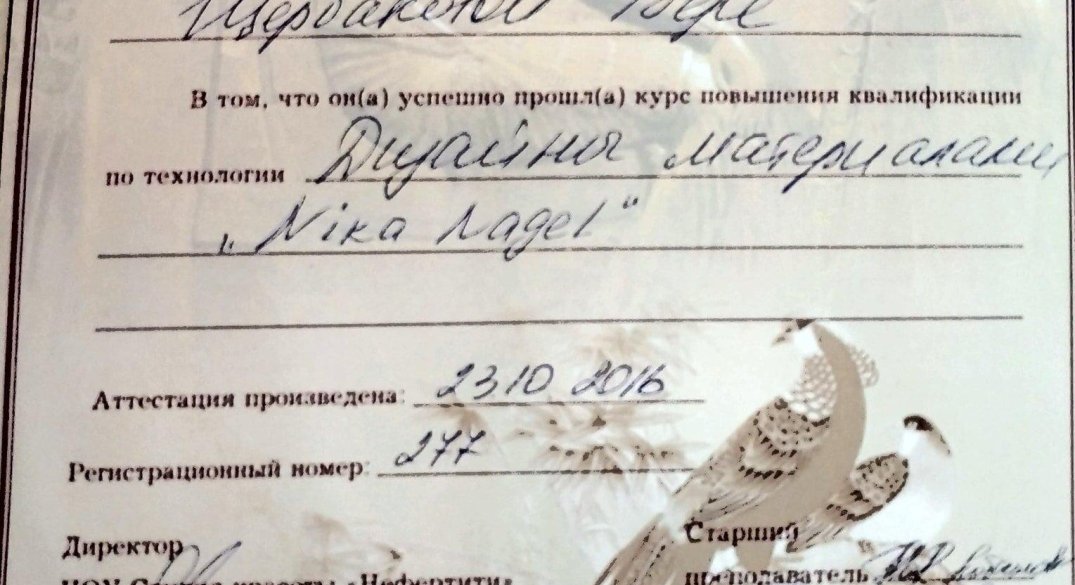 Щербаковой Вере
В том, что он(а) успешно прошл(а) курс повышения квалификации
по технологии Дизайны материалами
„Nika Nagel“
Аттестация произведена: 23 10 2016
Регистрационный номер: 277
Директор Старший
НОУ Студия красоты «Нефертити» преподаватель